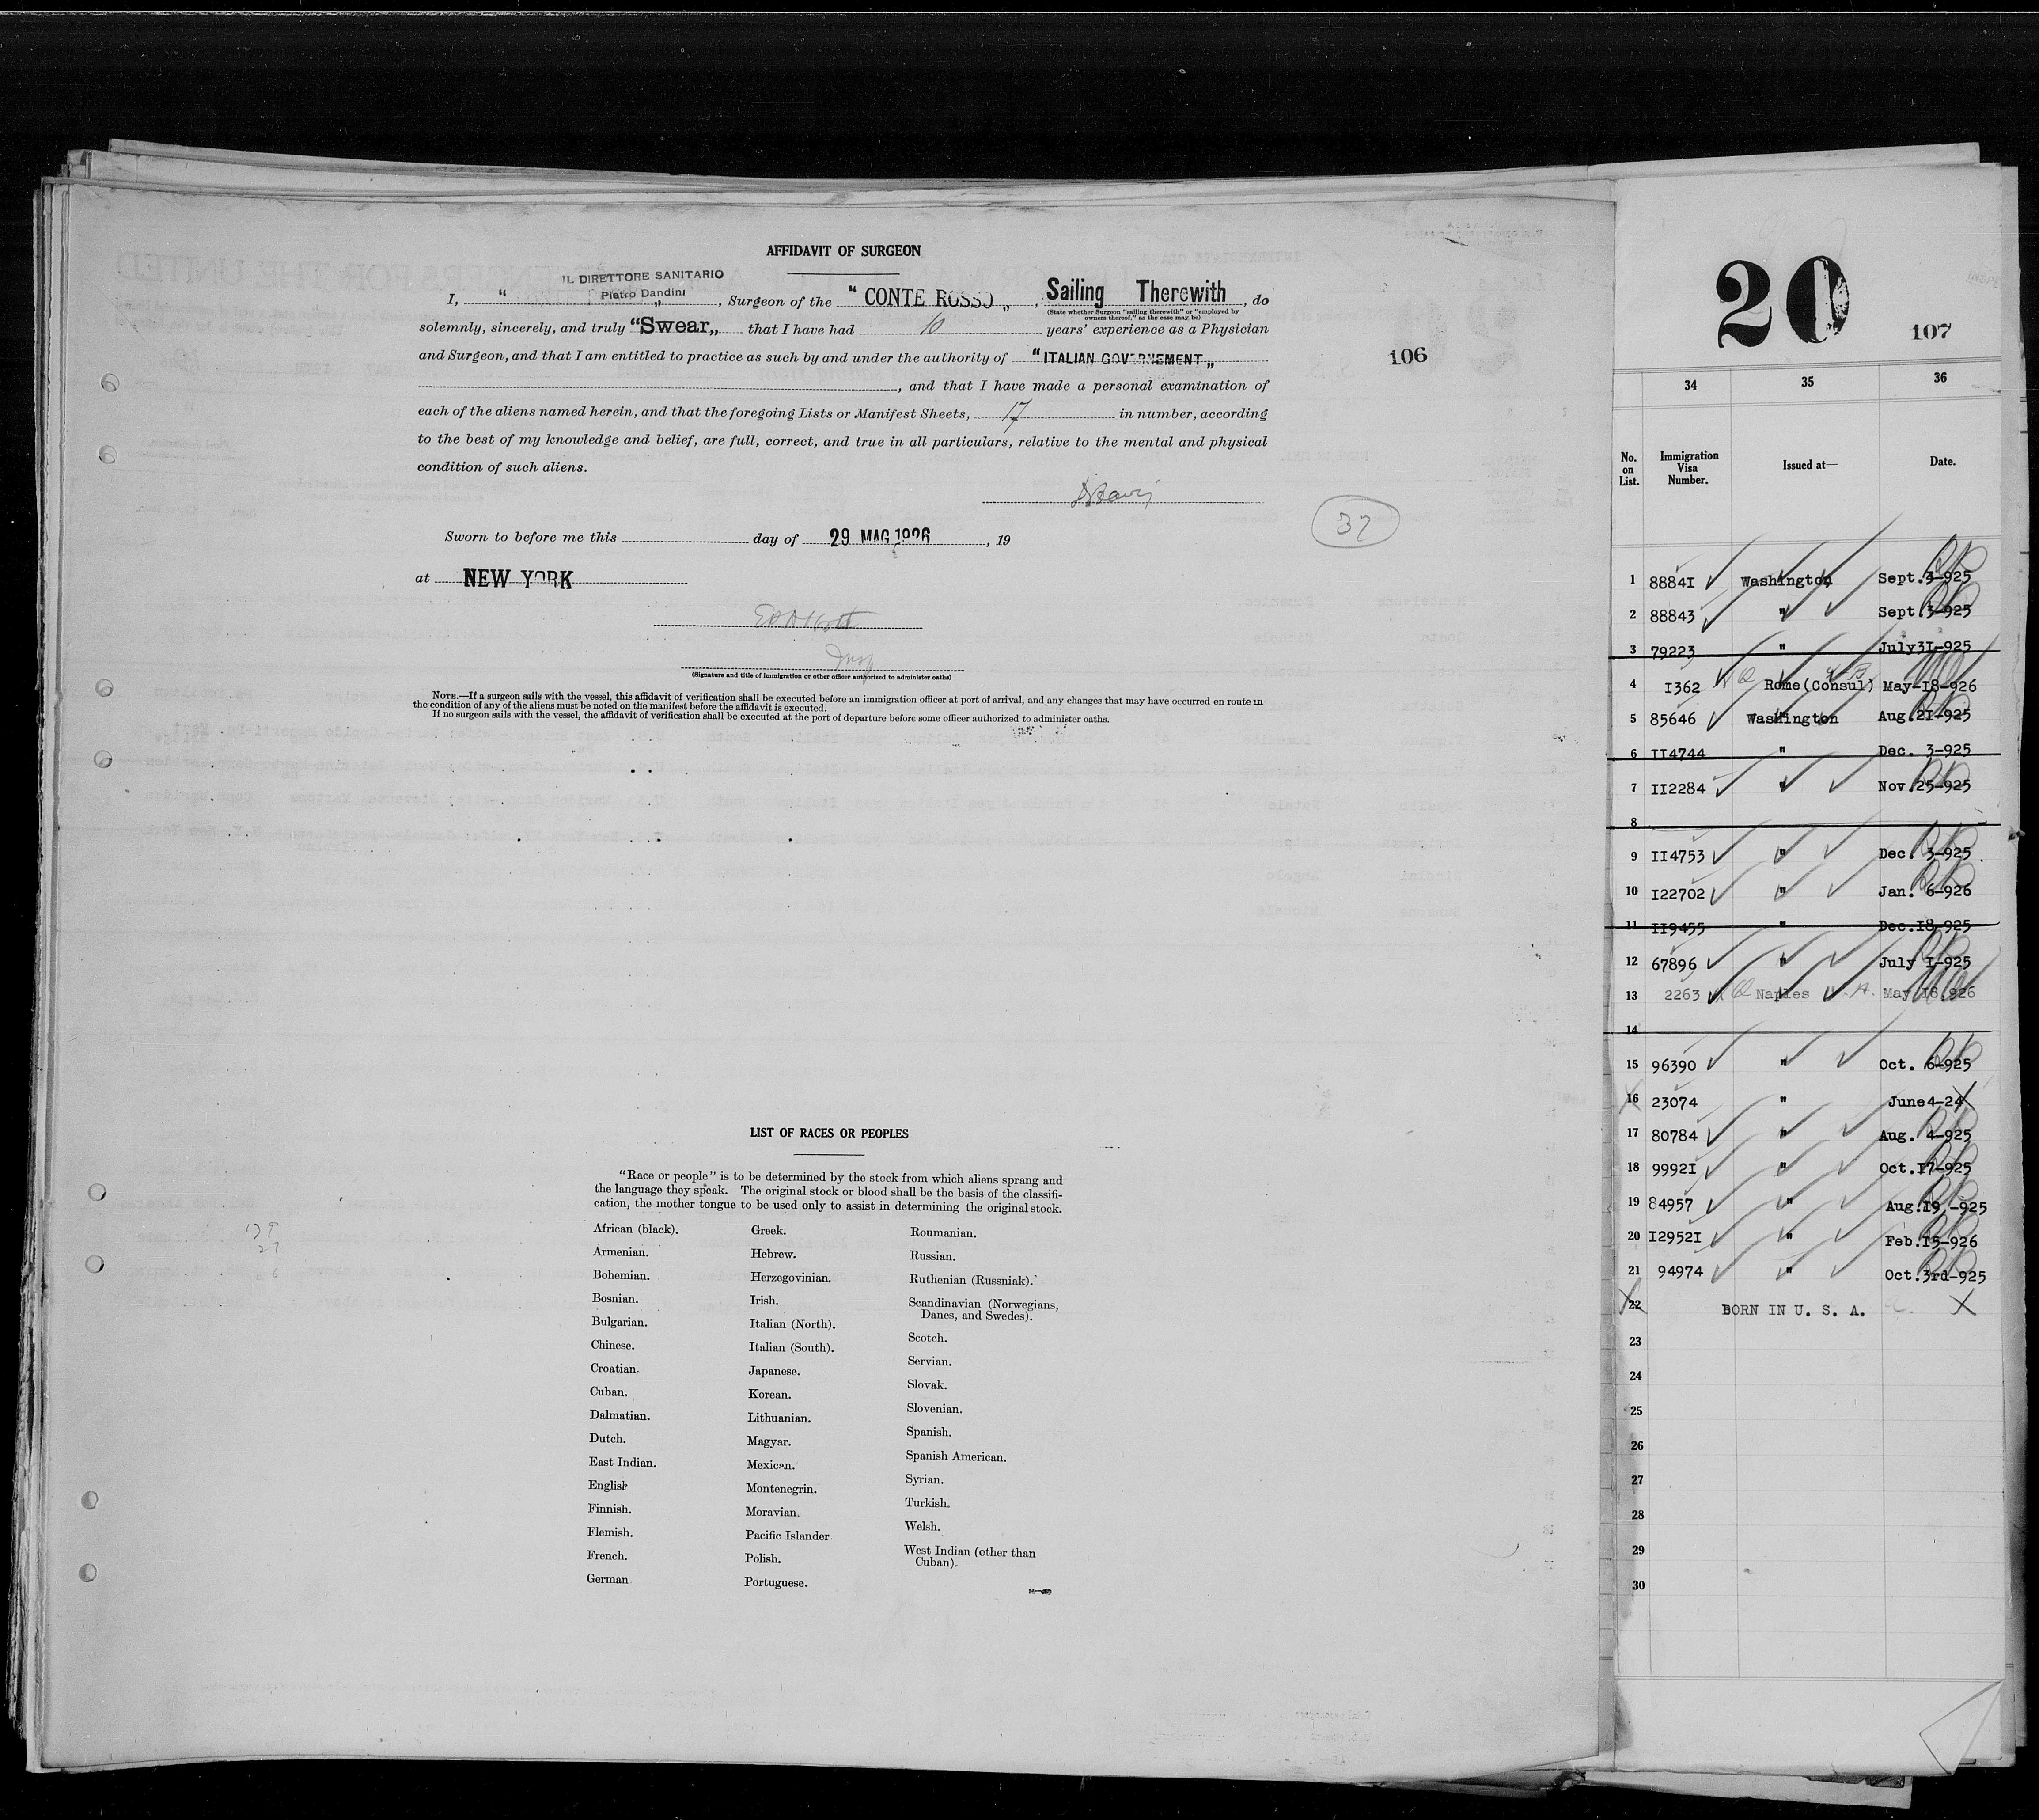 AFFIDAVIT OF SURGEON
IL DIRETTORE SANITARIO
I, " Pietro Dandini „ , Surgeon of the " CONTE ROSSO „ , Sailing Therewith , do
(State whether Surgeon "sailing therewith" or "employed by
owners thereof," as the case may be)
solemnly, sincerely, and truly "Swear„ that I have had 10 years' experience as a Physician
and Surgeon, and that I am entitled to practice as such by and under the authority of "ITALIAN GOVERNEMENT„
, and that I have made a personal examination of
each of the aliens named herein, and that the foregoing Lists or Manifest Sheets, 17 in number, according
to the best of my knowledge and belief, are full, correct, and true in all particulars, relative to the mental and physical
condition of such aliens.
37
Sworn to before me this day of 29 MAG 1926 , 19
at NEW YORK
(Signature and title of immigration or other officer authorized to administer oaths)
NOTE.—If a surgeon sails with the vessel, this affidavit of verification shall be executed before an immigration officer at port of arrival, and any changes that may have occurred en route in
the condition of any of the aliens must be noted on the manifest before the affidavit is executed.
If no surgeon sails with the vessel, the affidavit of verification shall be executed at the port of departure before some officer authorized to administer oaths.
106
LIST OF RACES OR PEOPLES
"Race or people" is to be determined by the stock from which aliens sprang and
the language they speak. The original stock or blood shall be the basis of the classifi-
cation, the mother tongue to be used only to assist in determining the original stock.
African (black).
Armenian.
Bohemian.
Bosnian.
Bulgarian.
Chinese.
Croatian.
Cuban.
Dalmatian.
Dutch.
East Indian.
English
Finnish.
Flemish.
French.
German
Greek.
Hebrew.
Herzegovinian.
Irish.
Italian (North).
Italian (South).
Japanese.
Korean.
Lithuanian.
Magyar.
Mexican.
Montenegrin.
Moravian.
Pacific Islander
Polish.
Portuguese.
Roumanian.
Russian.
Ruthenian (Russniak).
Scandinavian (Norwegians,
Danes, and Swedes).
Scotch.
Servian.
Slovak.
Slovenian.
Spanish.
Spanish American.
Syrian.
Turkish.
Welsh.
West Indian (other than
Cuban).
20
107
34 35 36
No. on List. Immigration Visa Number. Issued at— Date.
1 8884I Washington Sept.3-925
2 88843 " Sept.3-925
3 79223 " July3I-925
4 I362 Rome(Consul) May-I8-926
5 85646 Washington Aug.2I-925
6 II4744 " Dec. 3-925
7 II2284 " Nov.25-925
8
9 II4753 " Dec. 3-925
10 I22702 " Jan. 6-926
11 II9455 " Dec.I8-925
12 67896 " July I-925
13 2263 Naples May I8.926
14
15 96390 " Oct. 6-925
16 23074 " June4-24
17 80784 " Aug. 4-925
18 9992I " Oct.I7-925
19 84957 " Aug.I9,-925
20 I2952I " Feb.I5-926
21 94974 " Oct.3rd-925
22 BORN IN U. S. A.
23
24
25
26
27
28
29
30